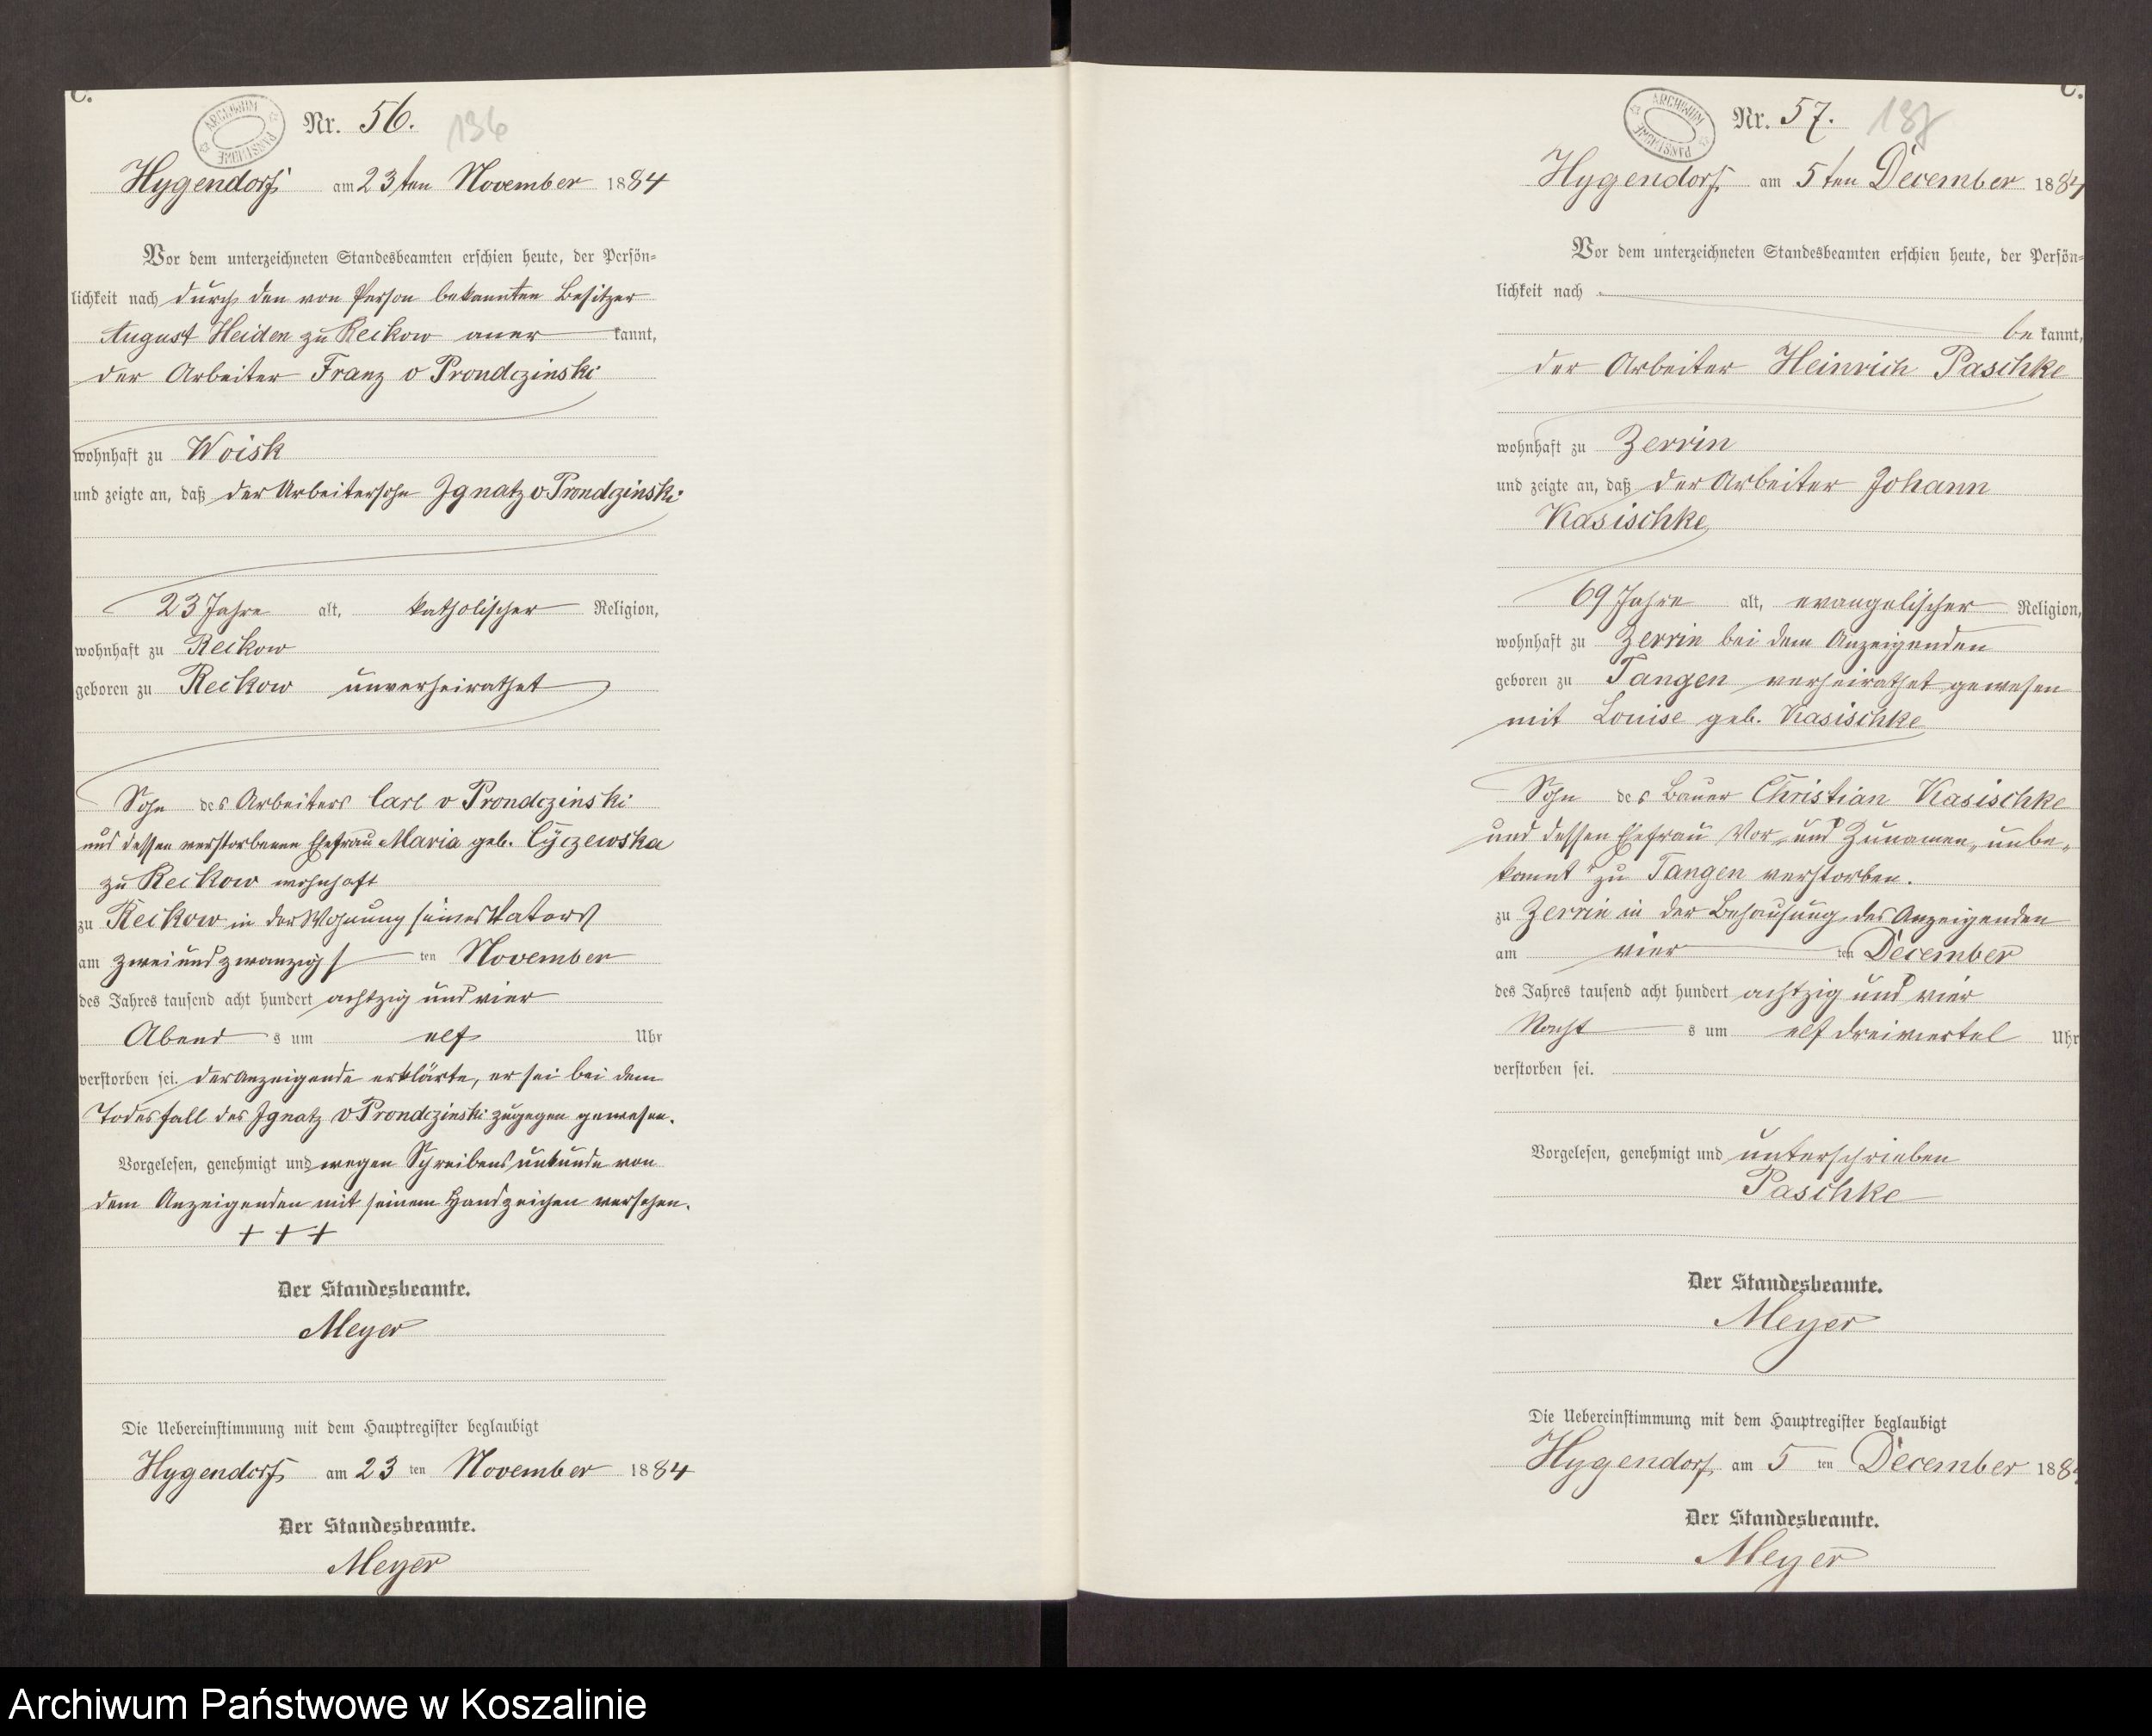 C.
ARCHIWUM PAŃSTWOWE
Nr. 56. 136
Hygendorf am 23ten November 1884
Vor dem unterzeichneten Standesbeamten erschien heute, der Persön-
lichkeit nach durch den von Person bekannten Besitzer
August Heiden zu Reckow aner kannt,
der Arbeiter Franz v Prondczinski
wohnhaft zu Woisk
und zeigte an, daß der Arbeitersohn Ignatz v Prondzinski
23 Jahre alt, katholischer Religion,
wohnhaft zu Reckow
geboren zu Reckow unverheirathet
Sohn des Arbeiters Carl v Prondczinski
und dessen verstorbenen Ehefrau Maria geb. Cyczewska
zu Reckow wohnhaft
zu Reckow in der Wohnung seines Vaters
am zweiundzwanzigs ten November
des Jahres tausend acht hundert achtzig und vier
Abend s um elf Uhr
verstorben sei. der Anzeigende erklärte, er sei bei dem
Todesfall des Ignatz v Prondczinski zugegen gewesen.
Vorgelesen, genehmigt und wegen Schreibensunkunde von
dem Anzeigenden mit seinem Handzeichen versehen.
+ + +
Der Standesbeamte.
Meyer
Die Uebereinstimmung mit dem Hauptregister beglaubigt
Hygendorf am 23 ten November 1884
Der Standesbeamte.
Meyer
C.
ARCHIWUM PAŃSTWOWE
Nr. 57. 137
Hygendorf am 5ten December 1884
Vor dem unterzeichneten Standesbeamten erschien heute, der Persön-
lichkeit nach
be kannt,
der Arbeiter Heinrich Paschke
wohnhaft zu Zerrin
und zeigte an, daß der Arbeiter Johann
Kasischke
69 Jahre alt, evangelischer Religion,
wohnhaft zu Zerrin bei dem Anzeigenden
geboren zu Tangen verheirathet gewesen
mit Louise geb. Kasischke
Sohn des Bauer Christian Kasischke
und dessen Ehefrau Vor- und Zunamen, unbe-
kannt zu Tangen verstorben.
zu Zerrin in der Behausung des Anzeigenden
am vier ten December
des Jahres tausend acht hundert achtzig und vier
Nacht s um elf dreiviertel Uhr
verstorben sei.
Vorgelesen, genehmigt und unterschrieben
Paschke
Der Standesbeamte.
Meyer
Die Uebereinstimmung mit dem Hauptregister beglaubigt
Hygendorf am 5 ten December 188
Der Standesbeamte.
Meyer
Archiwum Państwowe w Koszalinie